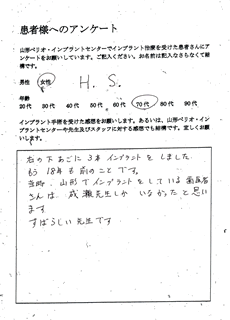 患者様へのアンケート
山形ペリオ・インプラントセンターでインプラント治療を受けた患者さんにア
ンケートをお願いしています。ご記入ください。お名前は記入なさらなくて結
構です。
男性 女性 H. S.
年齢
20代 30代 40代 50代 60代 70代 80代 90代
インプラント手術を受けた感想をお願いします。あるいは、山形ペリオ・イン
プラントセンターや先生及びスタッフに対する感想でも結構です。宜しくお願
いします。
右の下あごに3本インプラントをしました。
もう18年も前のことです。
当時、山形でインプラントをしている歯医者
さんは、成瀬先生しかいなかったと思い
ます。
すばらしい先生です